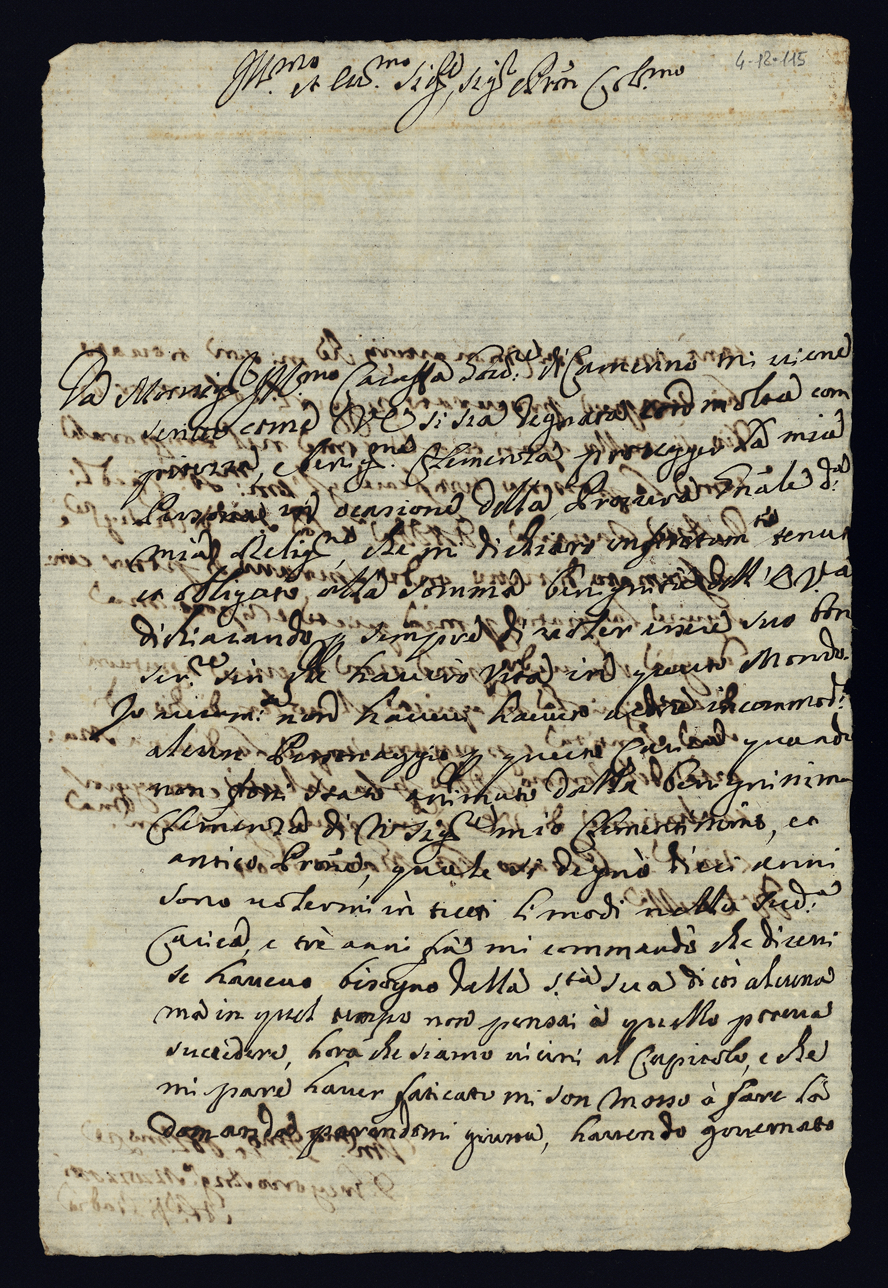 4-12-115
Ill.mo et Ecc.mo Sig.re, Sig.r Pron Col.mo
Da Monsig.r Ill.mo Caraffa Gov.re di Camerino mi viene
scritto come V.E. si sia degnata con molta com
pitezza, e benig.ma Clemenza proteggere la mia
Persona in ocasione della Procura Gnãle d.a
mia Relig.ne, che mi dichiaro infinitam.te tenut
et obligato alla somma benignità dell'E. V.a
dichiarando p sempre di voler essere suo bon
ser.re sin che haverò vita in questo Mondo.
Io sicuram.te non havevi havuto ardire incommod.e
alcun Personaggio p questa Carica quando
non fossi stato animato dalla benignissima
Clemenza di N. Sig.re mio Clementissimo, et
antico Prõne, quale si degnò dieci anni
sono volermi in tutti li modi nella sud.a
Carica, e trè anni fà mi commandò che dicessi
se havevo bisogno dalla S.tà sua di cos alcuna
mà in quel tempo non pensai à quello poteva
succedere, hora che siamo vicini al Capitolo, e che
mi pare haver faticato mi son mosso à fare la
domanda parendomi giusta, havendo governato